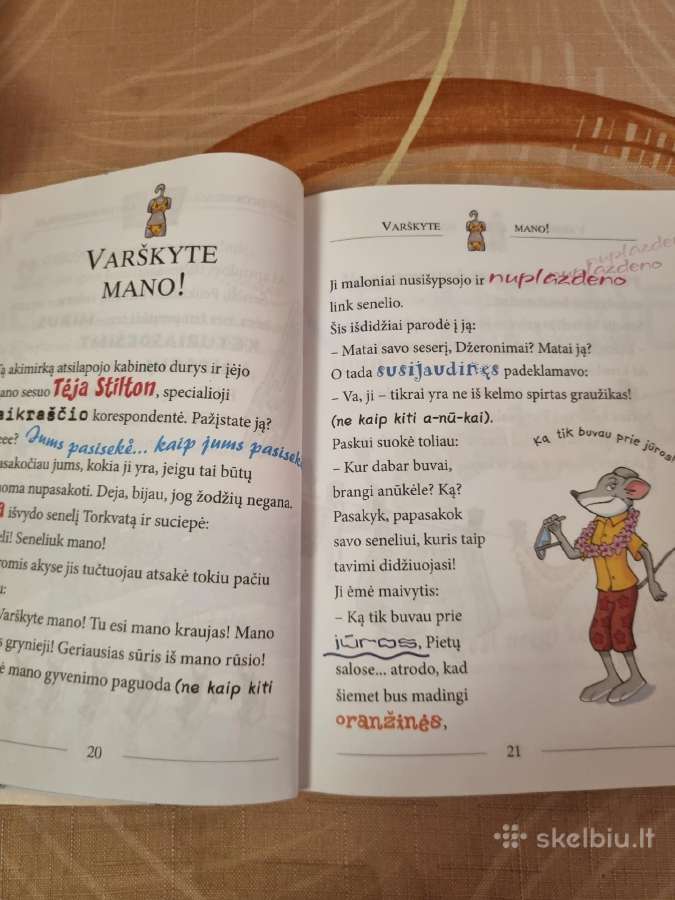 VARŠKYTE
MANO!
akimirką atsilapojo kabineto durys ir įėjo
sesuo Tėja Stilton, specialioji
korespondentė. Pažįstate ją?
Jums pasisekė... kaip jums
jums, kokia ji yra, jeigu tai būtų
nupasakoti. Deja, bijau, jog žodžių negana.
išvydo senelį Torkvatą ir suciepė:
Seneliuk mano!
akyse jis tučtuojau atsakė tokiu pačiu
Varškyte mano! Tu esi mano kraujas! Mano
grynieji! Geriausias sūris iš mano rūsio!
mano gyvenimo paguoda (ne kaip kiti
20
VARŠKYTE MANO!
nuplazdeno
nuplazdeno
Ji maloniai nusišypsojo ir nuplazdeno
link senelio.
Šis išdidžiai parodė į ją:
– Matai savo seserį, Džeronimai? Matai ją?
O tada susijaudinęs padeklamavo:
– Va, ji – tikrai yra ne iš kelmo spirtas graužikas!
(ne kaip kiti a-nū-kai).
Paskui suokė toliau:
– Kur dabar buvai,
brangi anūkėle? Ką?
Pasakyk, papasakok
savo seneliui, kuris taip
tavimi didžiuojasi!
Ji ėmė maivytis:
– Ką tik buvau prie
jūros, Pietų
salose... atrodo, kad
šiemet bus madingi
oranžinės,
Ką tik buvau prie jūros!
21
skelbiu.lt